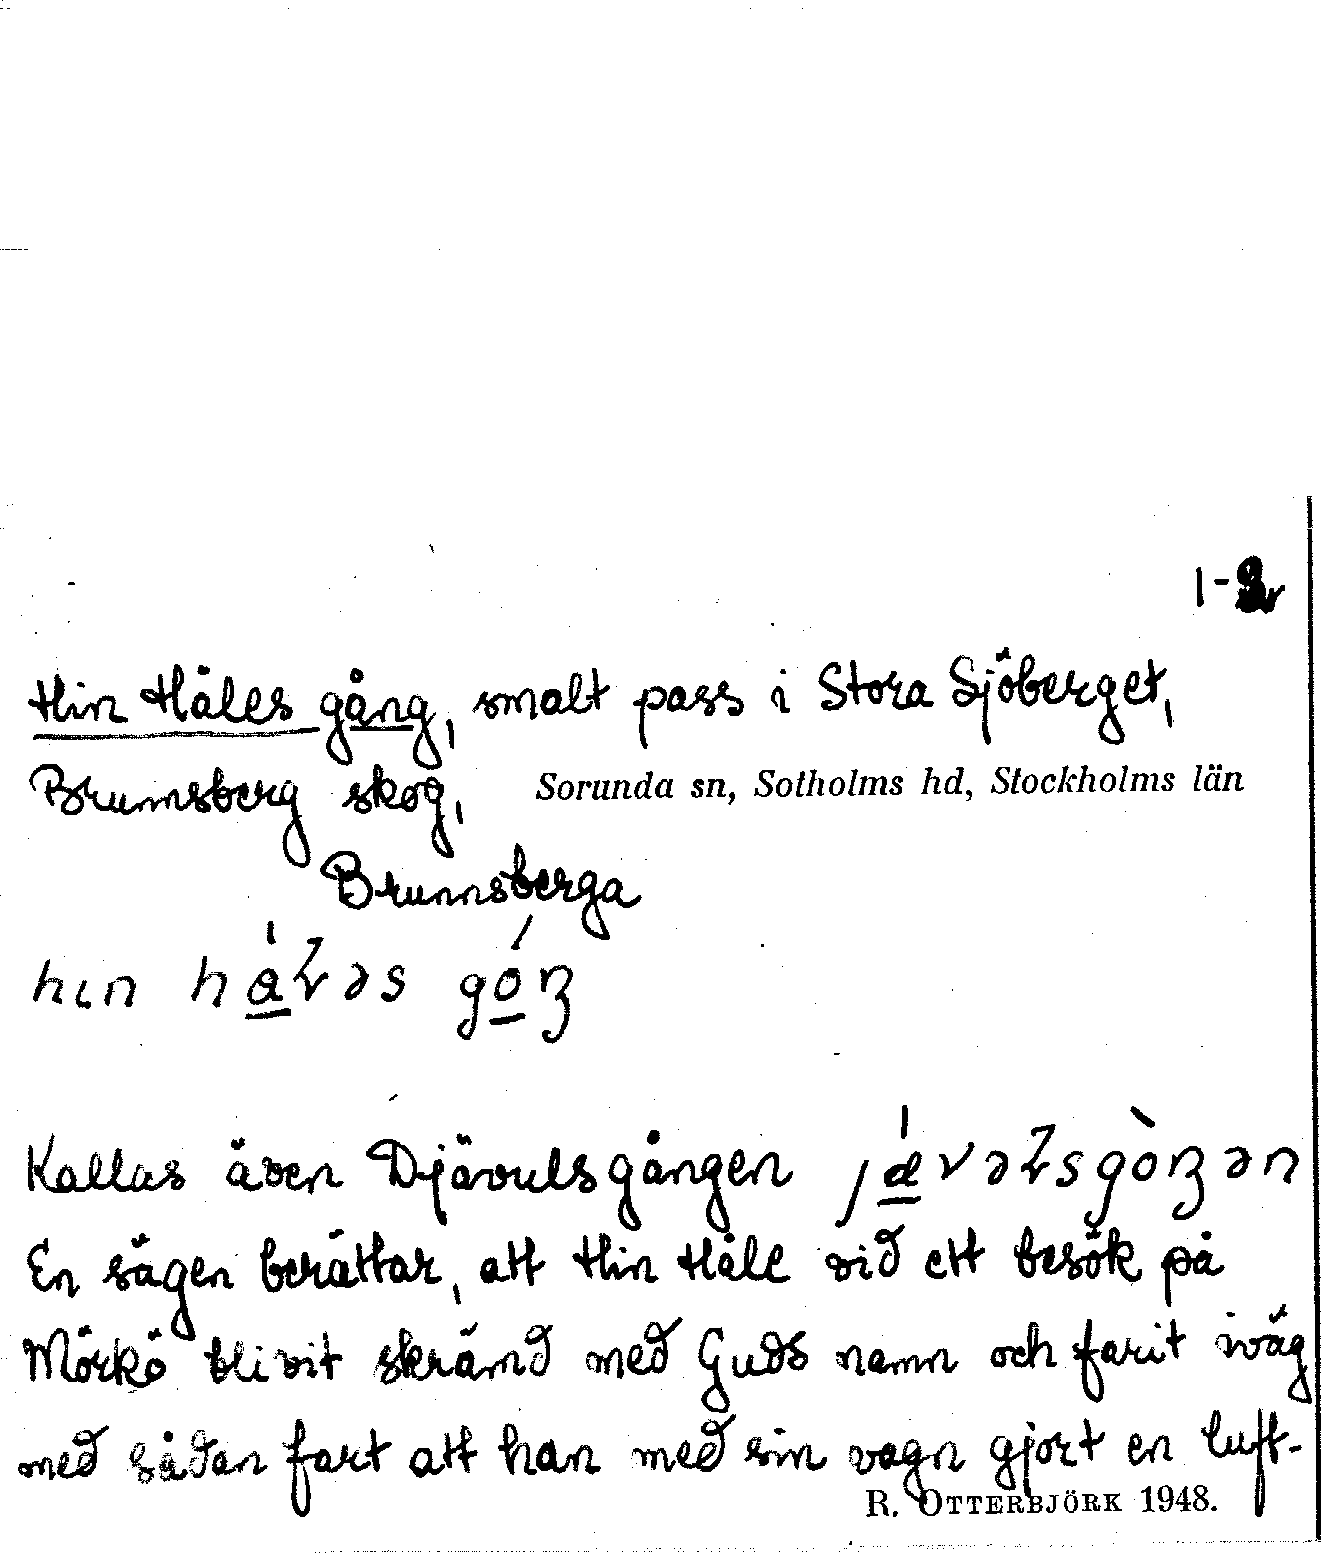 1-2
Hin Håles gång, smalt pass i Stora Sjöberget,
Brunnsberg skog, Sorunda sn, Sotholms hd, Stockholms län
Brunnsberga
hin
Kallas även Djävulsgången
En sägen berättar, att Hin Håle vid ett besök på
Mörkö blivit skrämd med Guds namn och farit iväg
med sådan fart att han med sin vagn gjort en luft-
R. OTTERBJÖRK 1948.